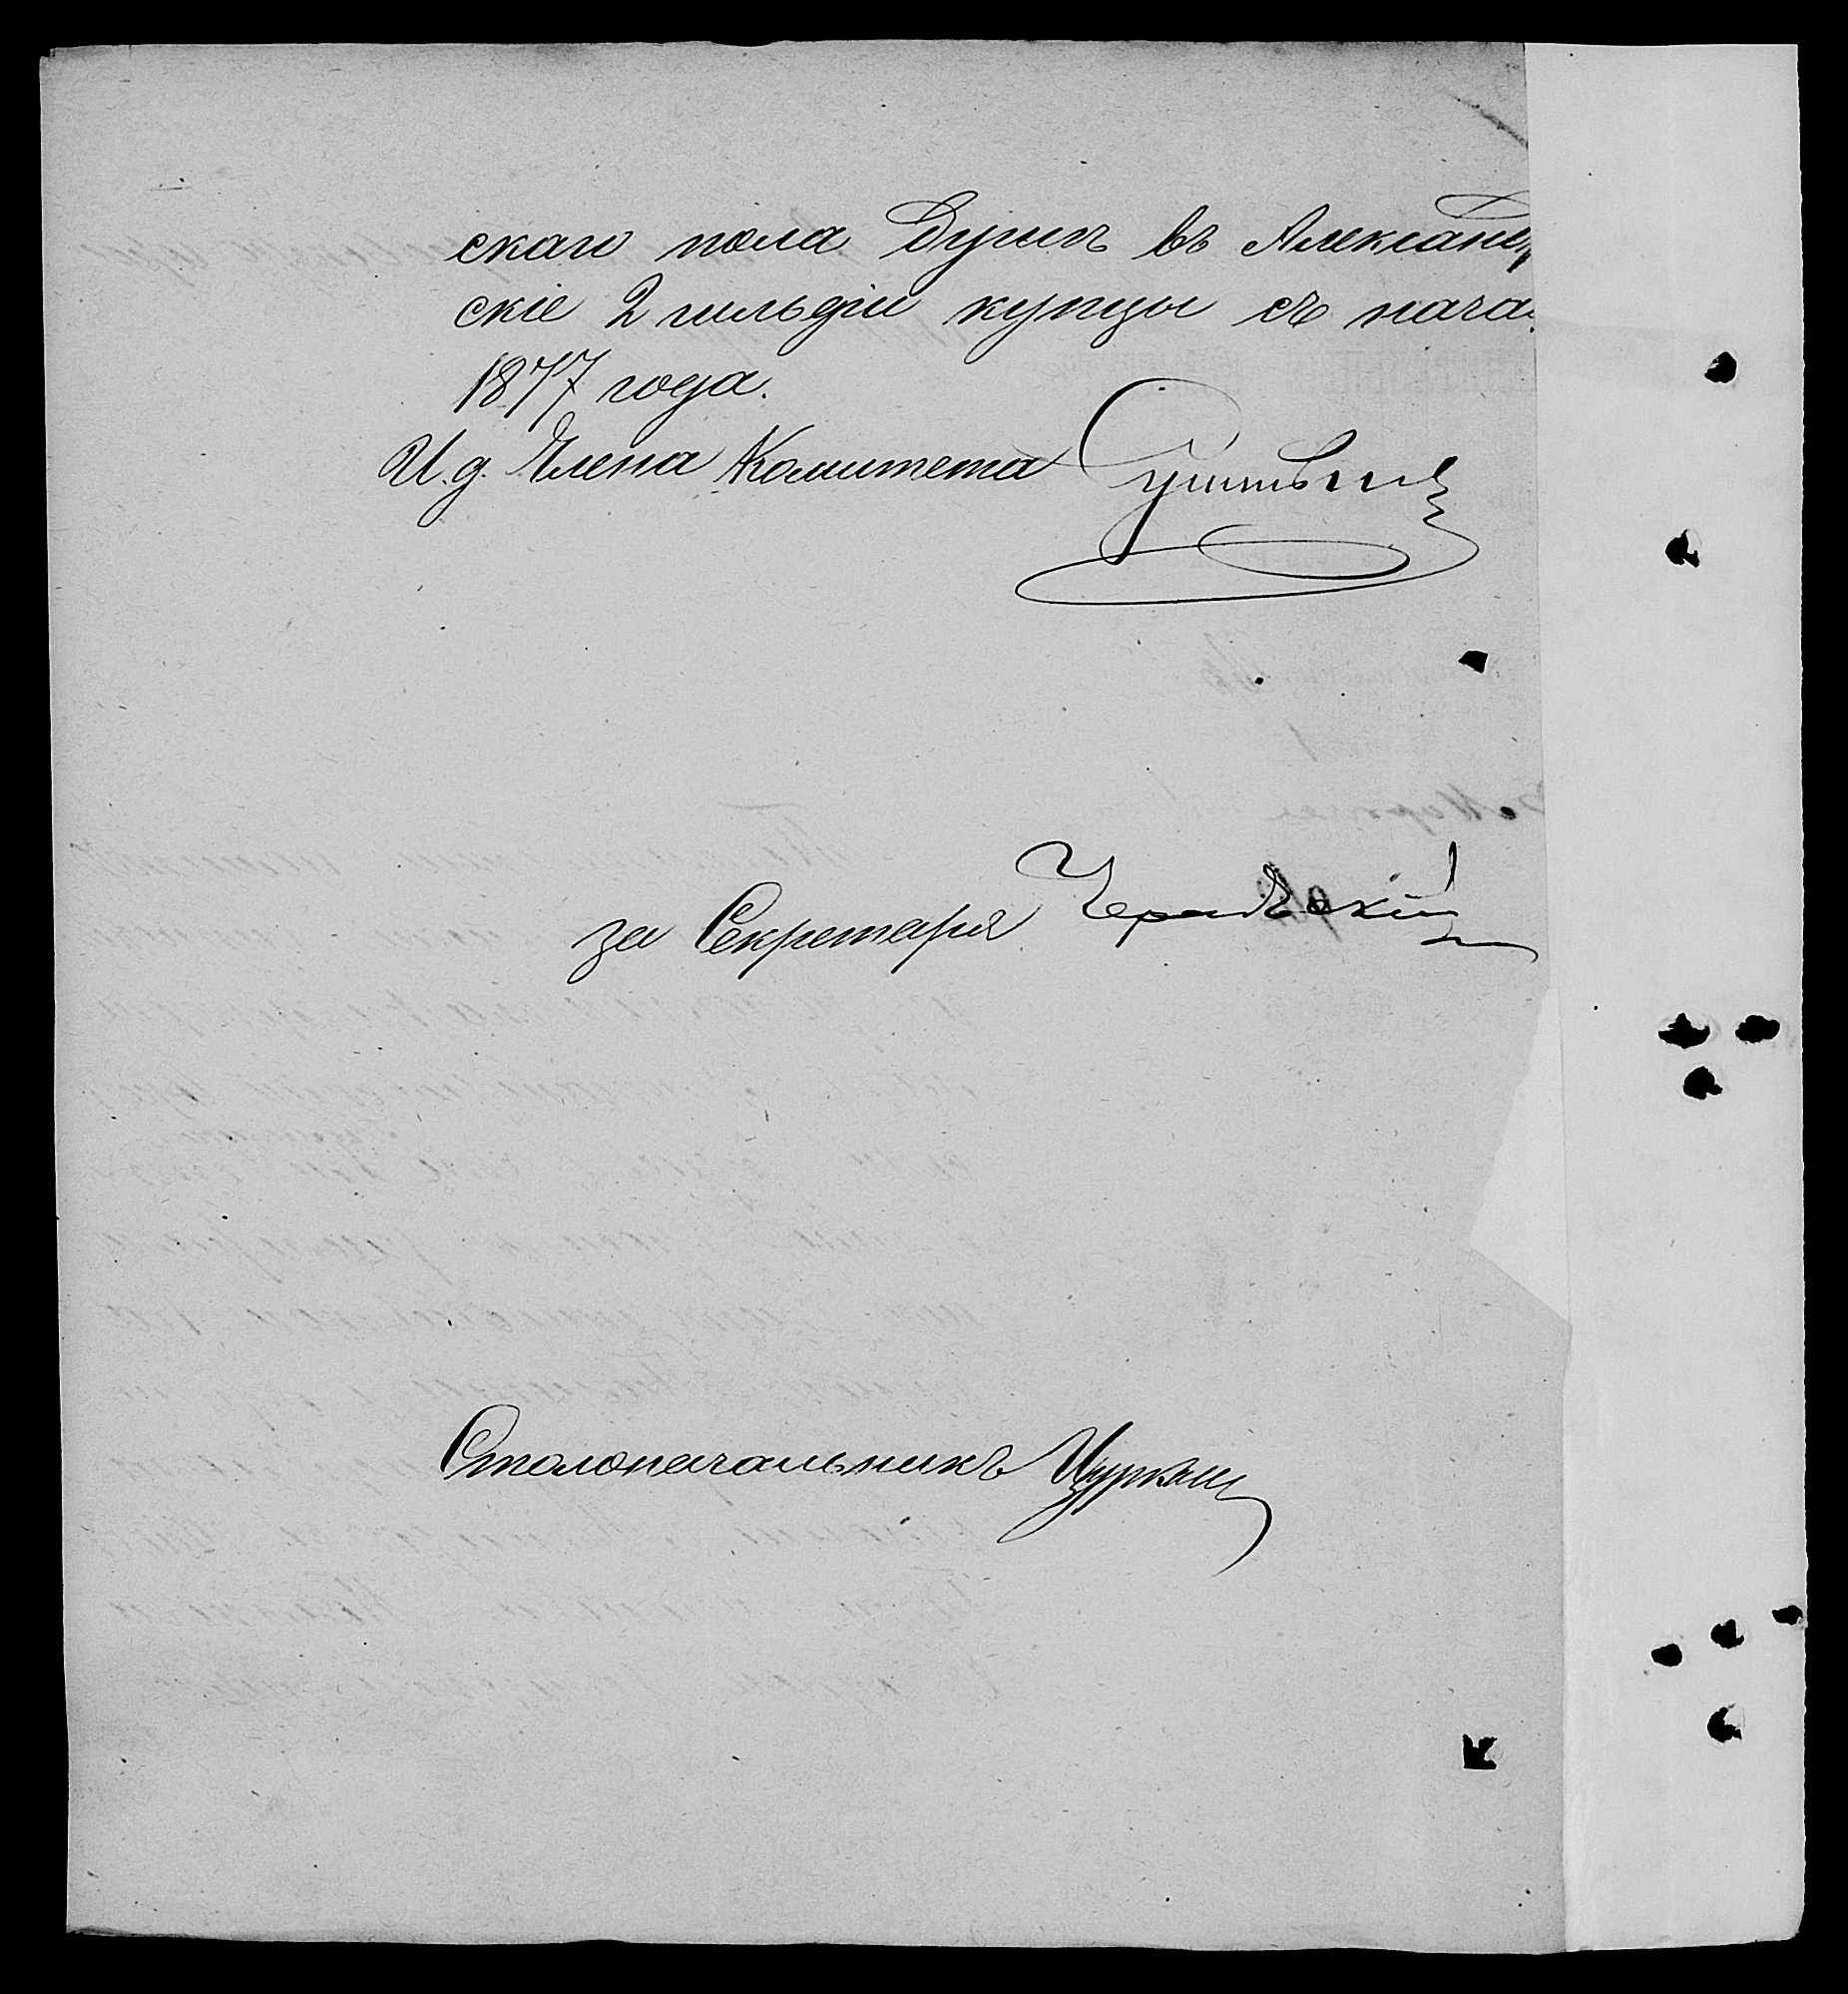 скаго пола душъ въ Александр
скіе 2 гильдіи купцы съ нача
1877 года.
И. д. Члена Комитета
за Секретаря
Столоначальникъ Цуркан